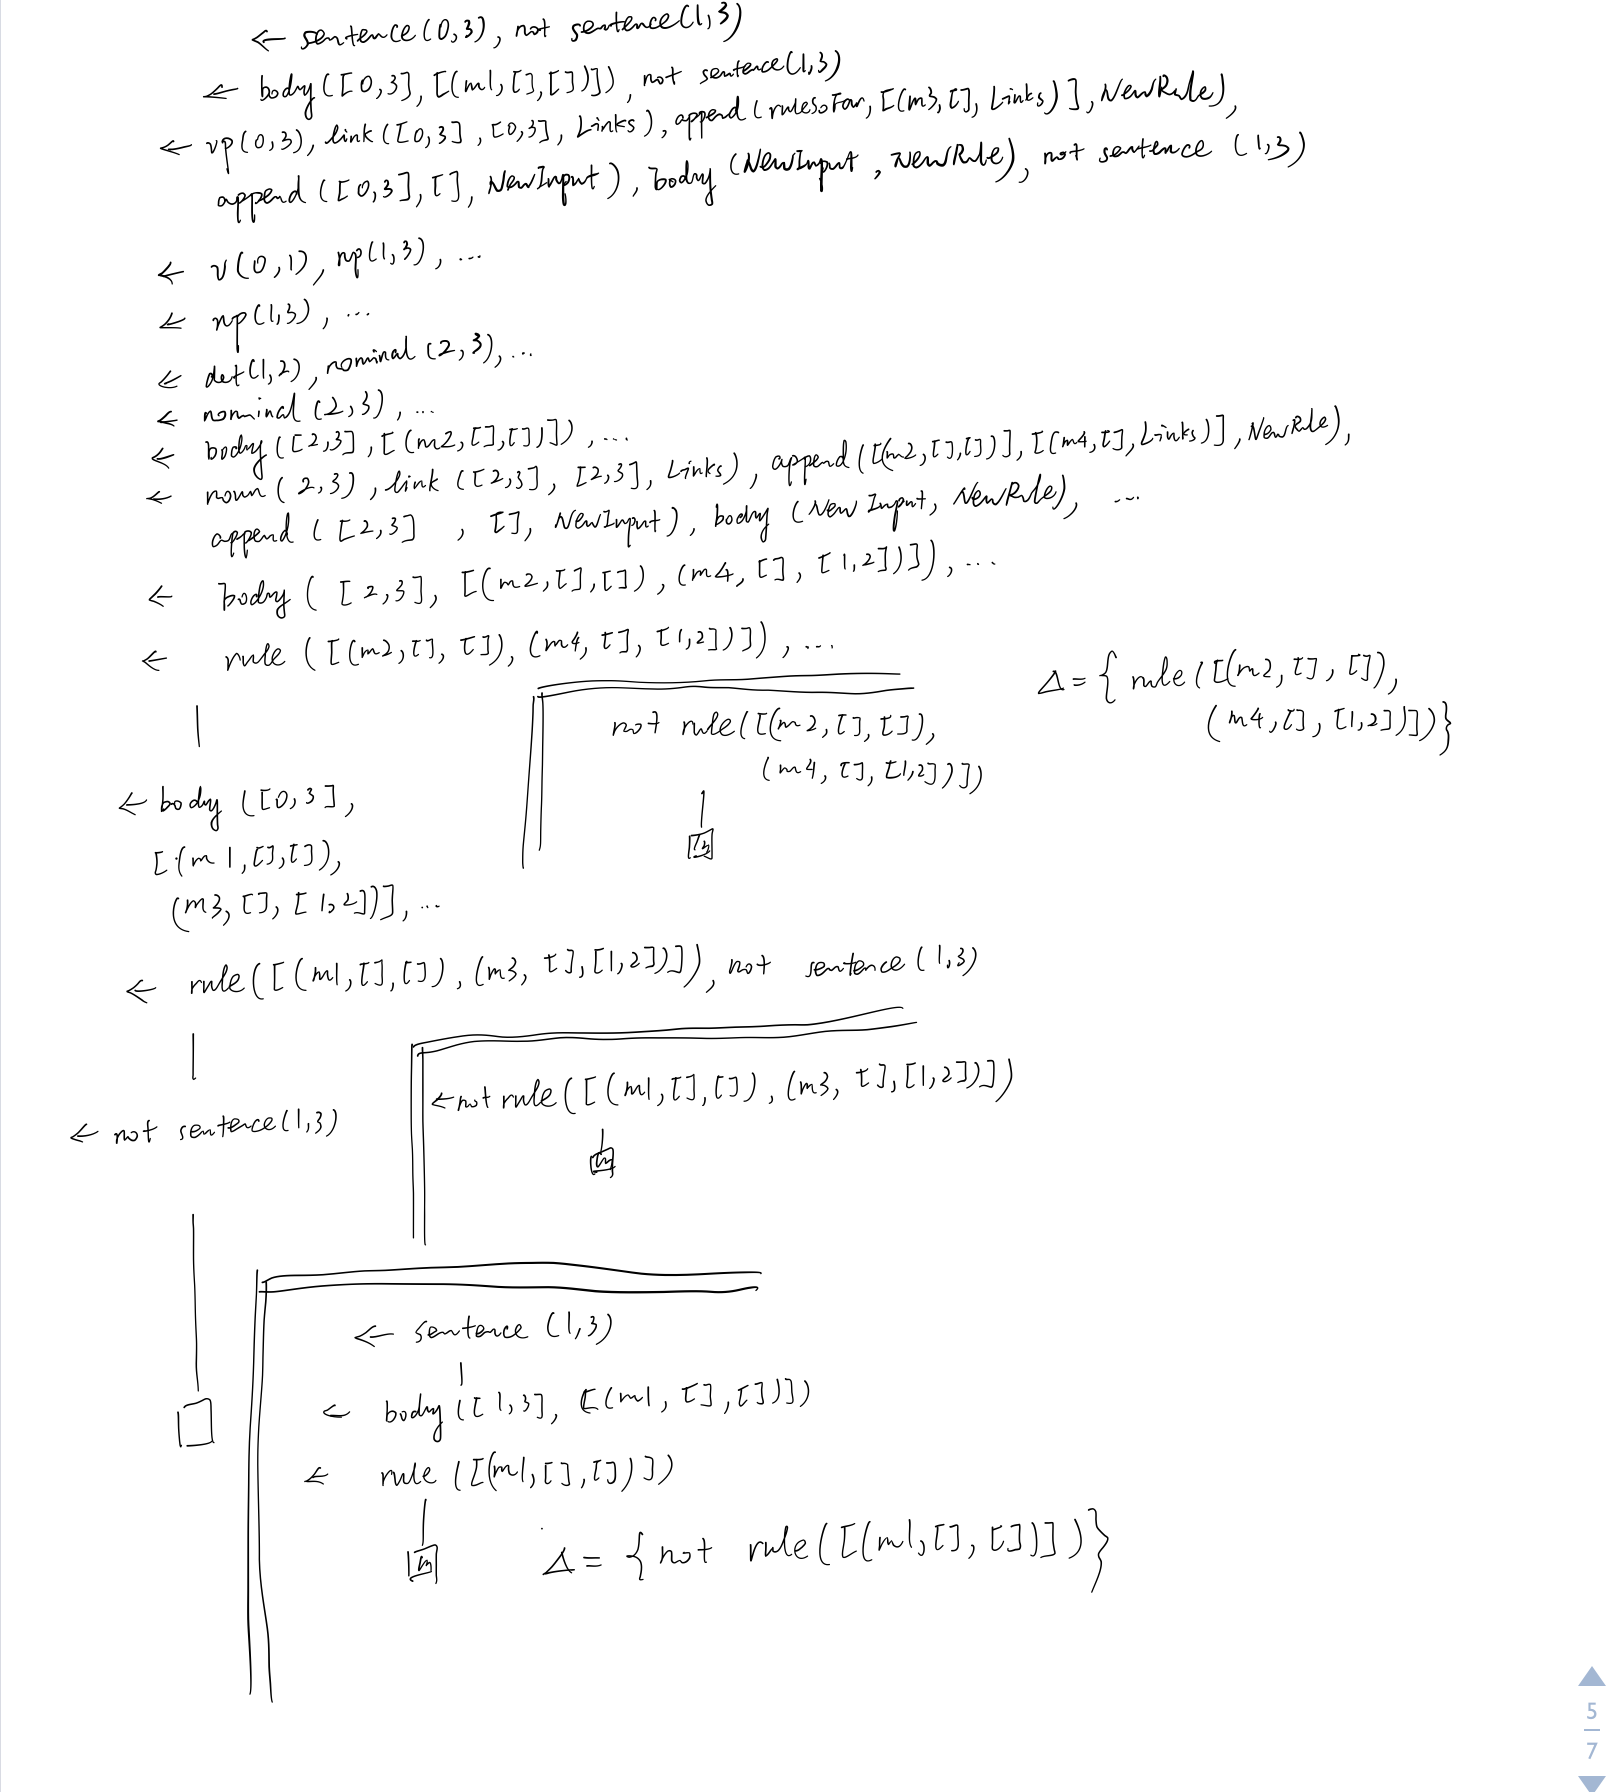 ← sentence(0,3), not sentence(1,3)
← body([0,3], [(m1,[],[])]), not sentence(1,3)
← vp(0,3), link([0,3],[0,3], Links), append(rulesSoFar, [(m3,[], Links)], NewRule),
append([0,3],[], NewInput), body(NewInput, NewRule), not sentence (1,3)
← v(0,1), np(1,3), ...
← np(1,3), ...
← det(1,2), nominal (2,3), ...
← nominal (2,3), ...
← body([2,3],[(m2,[],[])]), ...
← noun(2,3), link([2,3], [2,3], Links), append([(m2,[],[])], [(m4,[],Links)], NewRule),
append ([2,3], [], NewInput), body (NewInput, NewRule), ...
← body ([2,3], [(m2,[],[]), (m4, [], [1,2])]), ...
← rule ([(m2,[], []), (m4, [], [1,2])]), ...
Δ = { rule([(m2, [], []),
(m4, [], [1,2])])}
not rule([(m2, [], []),
(m4, [], [1,2])])
← body ([0,3],
[(m1,[],[]),
(m3, [], [1,2])], ...
← rule([(m1,[],[]), (m3, [],[1,2])]), not sentence (1,3)
← not rule([(m1,[],[]), (m3, [],[1,2])])
← not sentence(1,3)
← sentence (1,3)
← body ([1,3], [(m1, [],[])])
← rule ([(m1,[],[])])
Δ = {not rule([(m1,[], [])])}
5
7